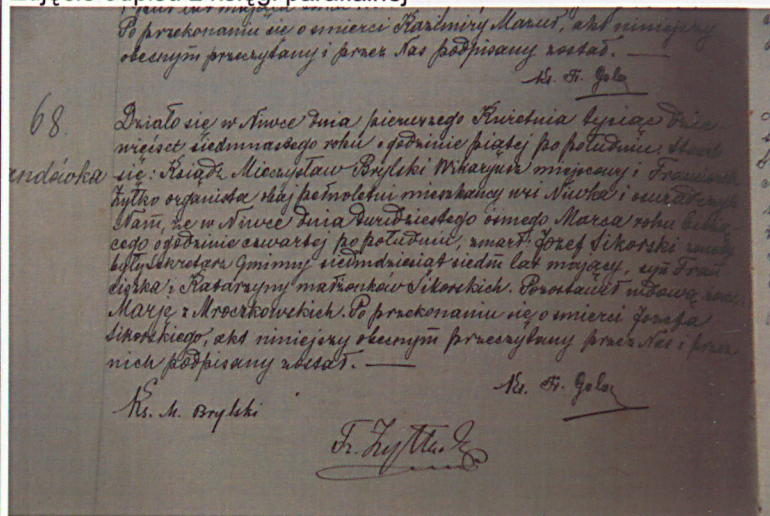 Zdjęcie odpisu z księgi parafialnej
Po przekonaniu się o śmierci Kazimiry Mazur, akt niniejszy
obecnym przeczytany i przez Nas podpisany został. —
Ks. Fr. Gola
68.
Działo się w Niwce dnia pierwszego Kwietnia tysiąc dzie-
więćset siedmnastego roku o godzinie piątej po południu. Stawili
się: Ksiądz Mieczysław Brylski Wikaryusz miejscowy i Franciszek
Żytko organista obaj pełnoletni mieszkańcy wsi Niwka i oświadczyli
Nam, że w Niwce dnia dwudziestego ósmego Marca roku bieżą-
cego o godzinie czwartej po południu, zmarł Józef Sikorski
były Sekretarz Gminny siedmdziesiąt siedm lat mający, syn Fran
ciszka i Katarzyny małżonków Sikorskich. Pozostawił wdową żonę
Marję z Mroczkowskich. Po przekonaniu się o śmierci Józefa
Sikorskiego, akt niniejszy obecnym przeczytany przez Nas i przez
nich podpisany został. —
Ks. Fr. Gola
Ks. M. Brylski
Fr. Żytko